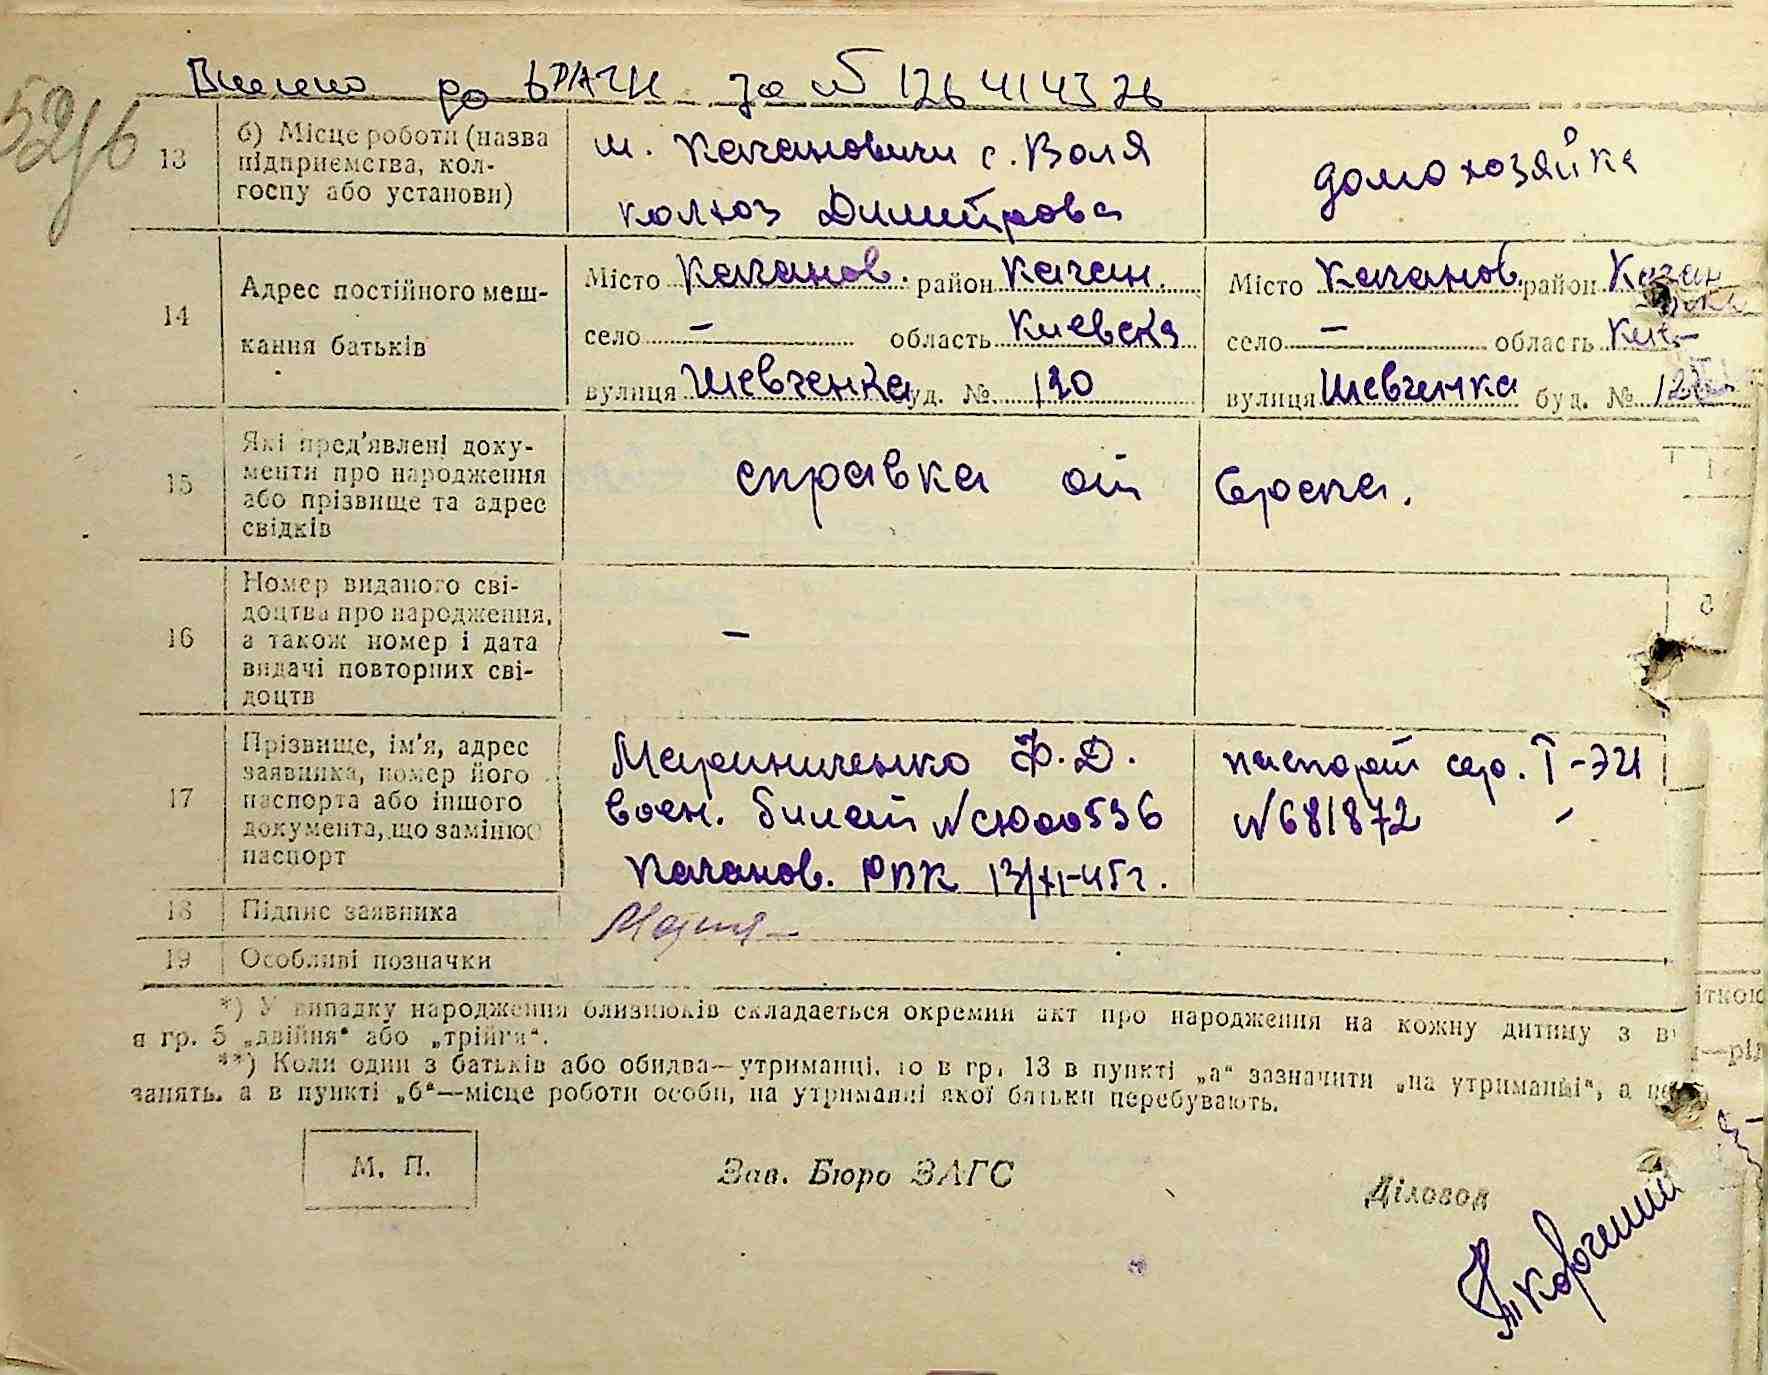 Внесено до ДРАЦС за № 126414326
52/б
13 б) Місце роботи (назва підприємства, колгоспу або установи)
м. Кагановичи с. Воля
колхоз Димитрова
домохозяйка
14 Адрес постійного мешкання батьків
Місто Каганов. район Каган.
село — область Киевска
вулиця Шевченка буд. № 120
Місто Каганов. район Каган
село — область Киев-
вулиця Шевченка буд. № 120
15 Які пред'явлені документи про народження або прізвище та адрес свідків
справка от врача.
16 Номер виданого свідоцтва про народження, а також номер і дата видачі повторних свідоцтв
–
17 Прізвище, ім'я, адрес заявника, номер його паспорта або іншого документа, що замінює паспорт
Мериниченко Ф. Д.
воен. билет №СЮ00536
Каганов. РВК 13/XI-45г.
паспорт сер. I-ЭЦ
№681872
18 Підпис заявника
19 Особливі позначки
*) У випадку народження близнюків складається окремий акт про народження на кожну дитину з в
в гр. 5 „двійня“ або „трійня“.
**) Коли один з батьків або обидва—утриманці, то в гр. 13 в пункті „а“ зазначити „на утриманні“, а не
занять, а в пункті „б“—місце роботи особи, на утриманні якої батьки перебувають.
М. П.
Зав. Бюро ЗАГС
Діловод